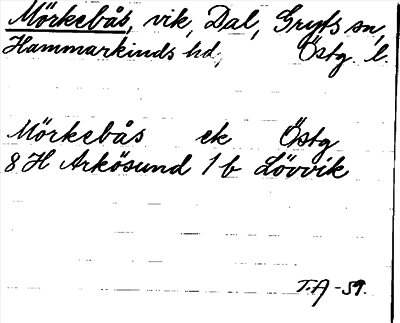 Mörkebås, vik, Dal, Gryts sn,
Hammarkinds hd, Östg l.
Mörkebås ek Östg
8 H Arkösund 1 b Lövvik
T.A -59.